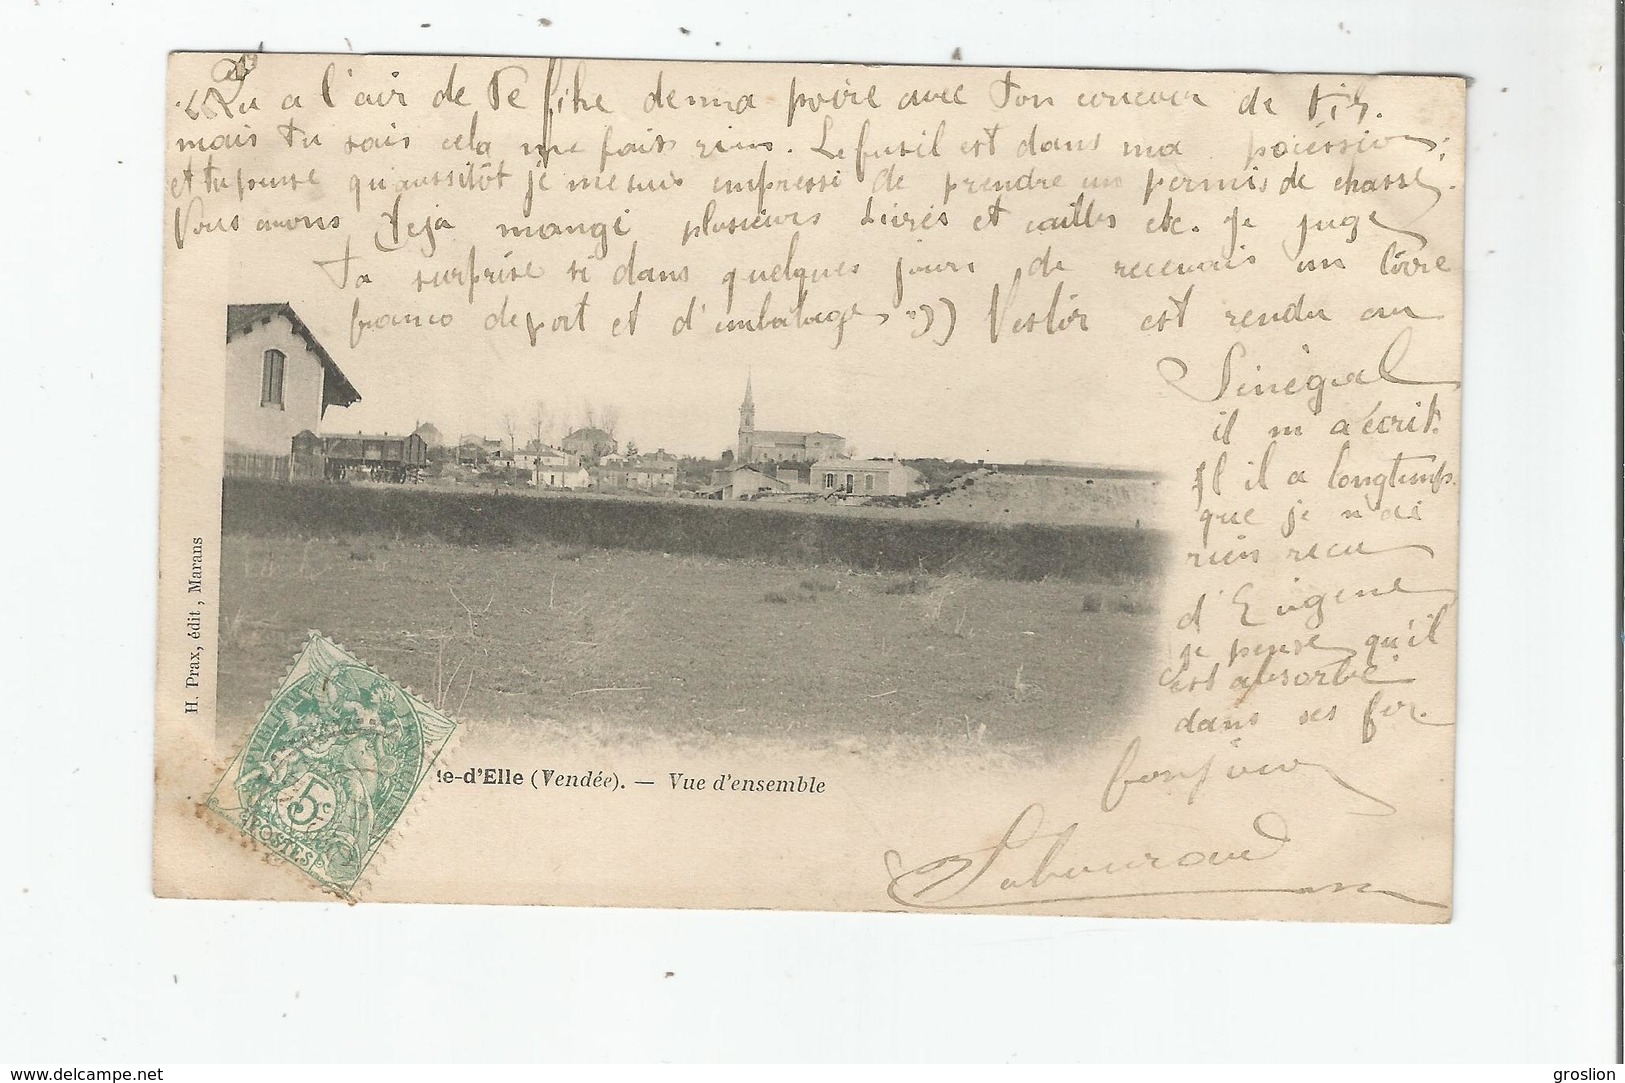 Tu a l'air de te fihe de ma poire avec ton concour de tir.
mais tu sais cela me fait rien. Le fusil est dans ma poicession
et tu pense qu'aussitôt je me suis empressé de prendre un permis de chasse.
Nous avons deja mangé plusieurs lievres et cailles etc. Je juge
ta surprise si dans quelques jours de recevais un lièvre
franco de port et d'embalage Nestor est rendu au
Sénégal
il m'a écrit.
Il il a longtemps
que je n'ai
rien recu
d'Eugene
je pense qu'il
est absorbé
dans ses
bonjour
H. Prax, édit, Marans
te-d'Elle (Vendée). — Vue d'ensemble
5c
POSTES
www.delcampe.net
groslion